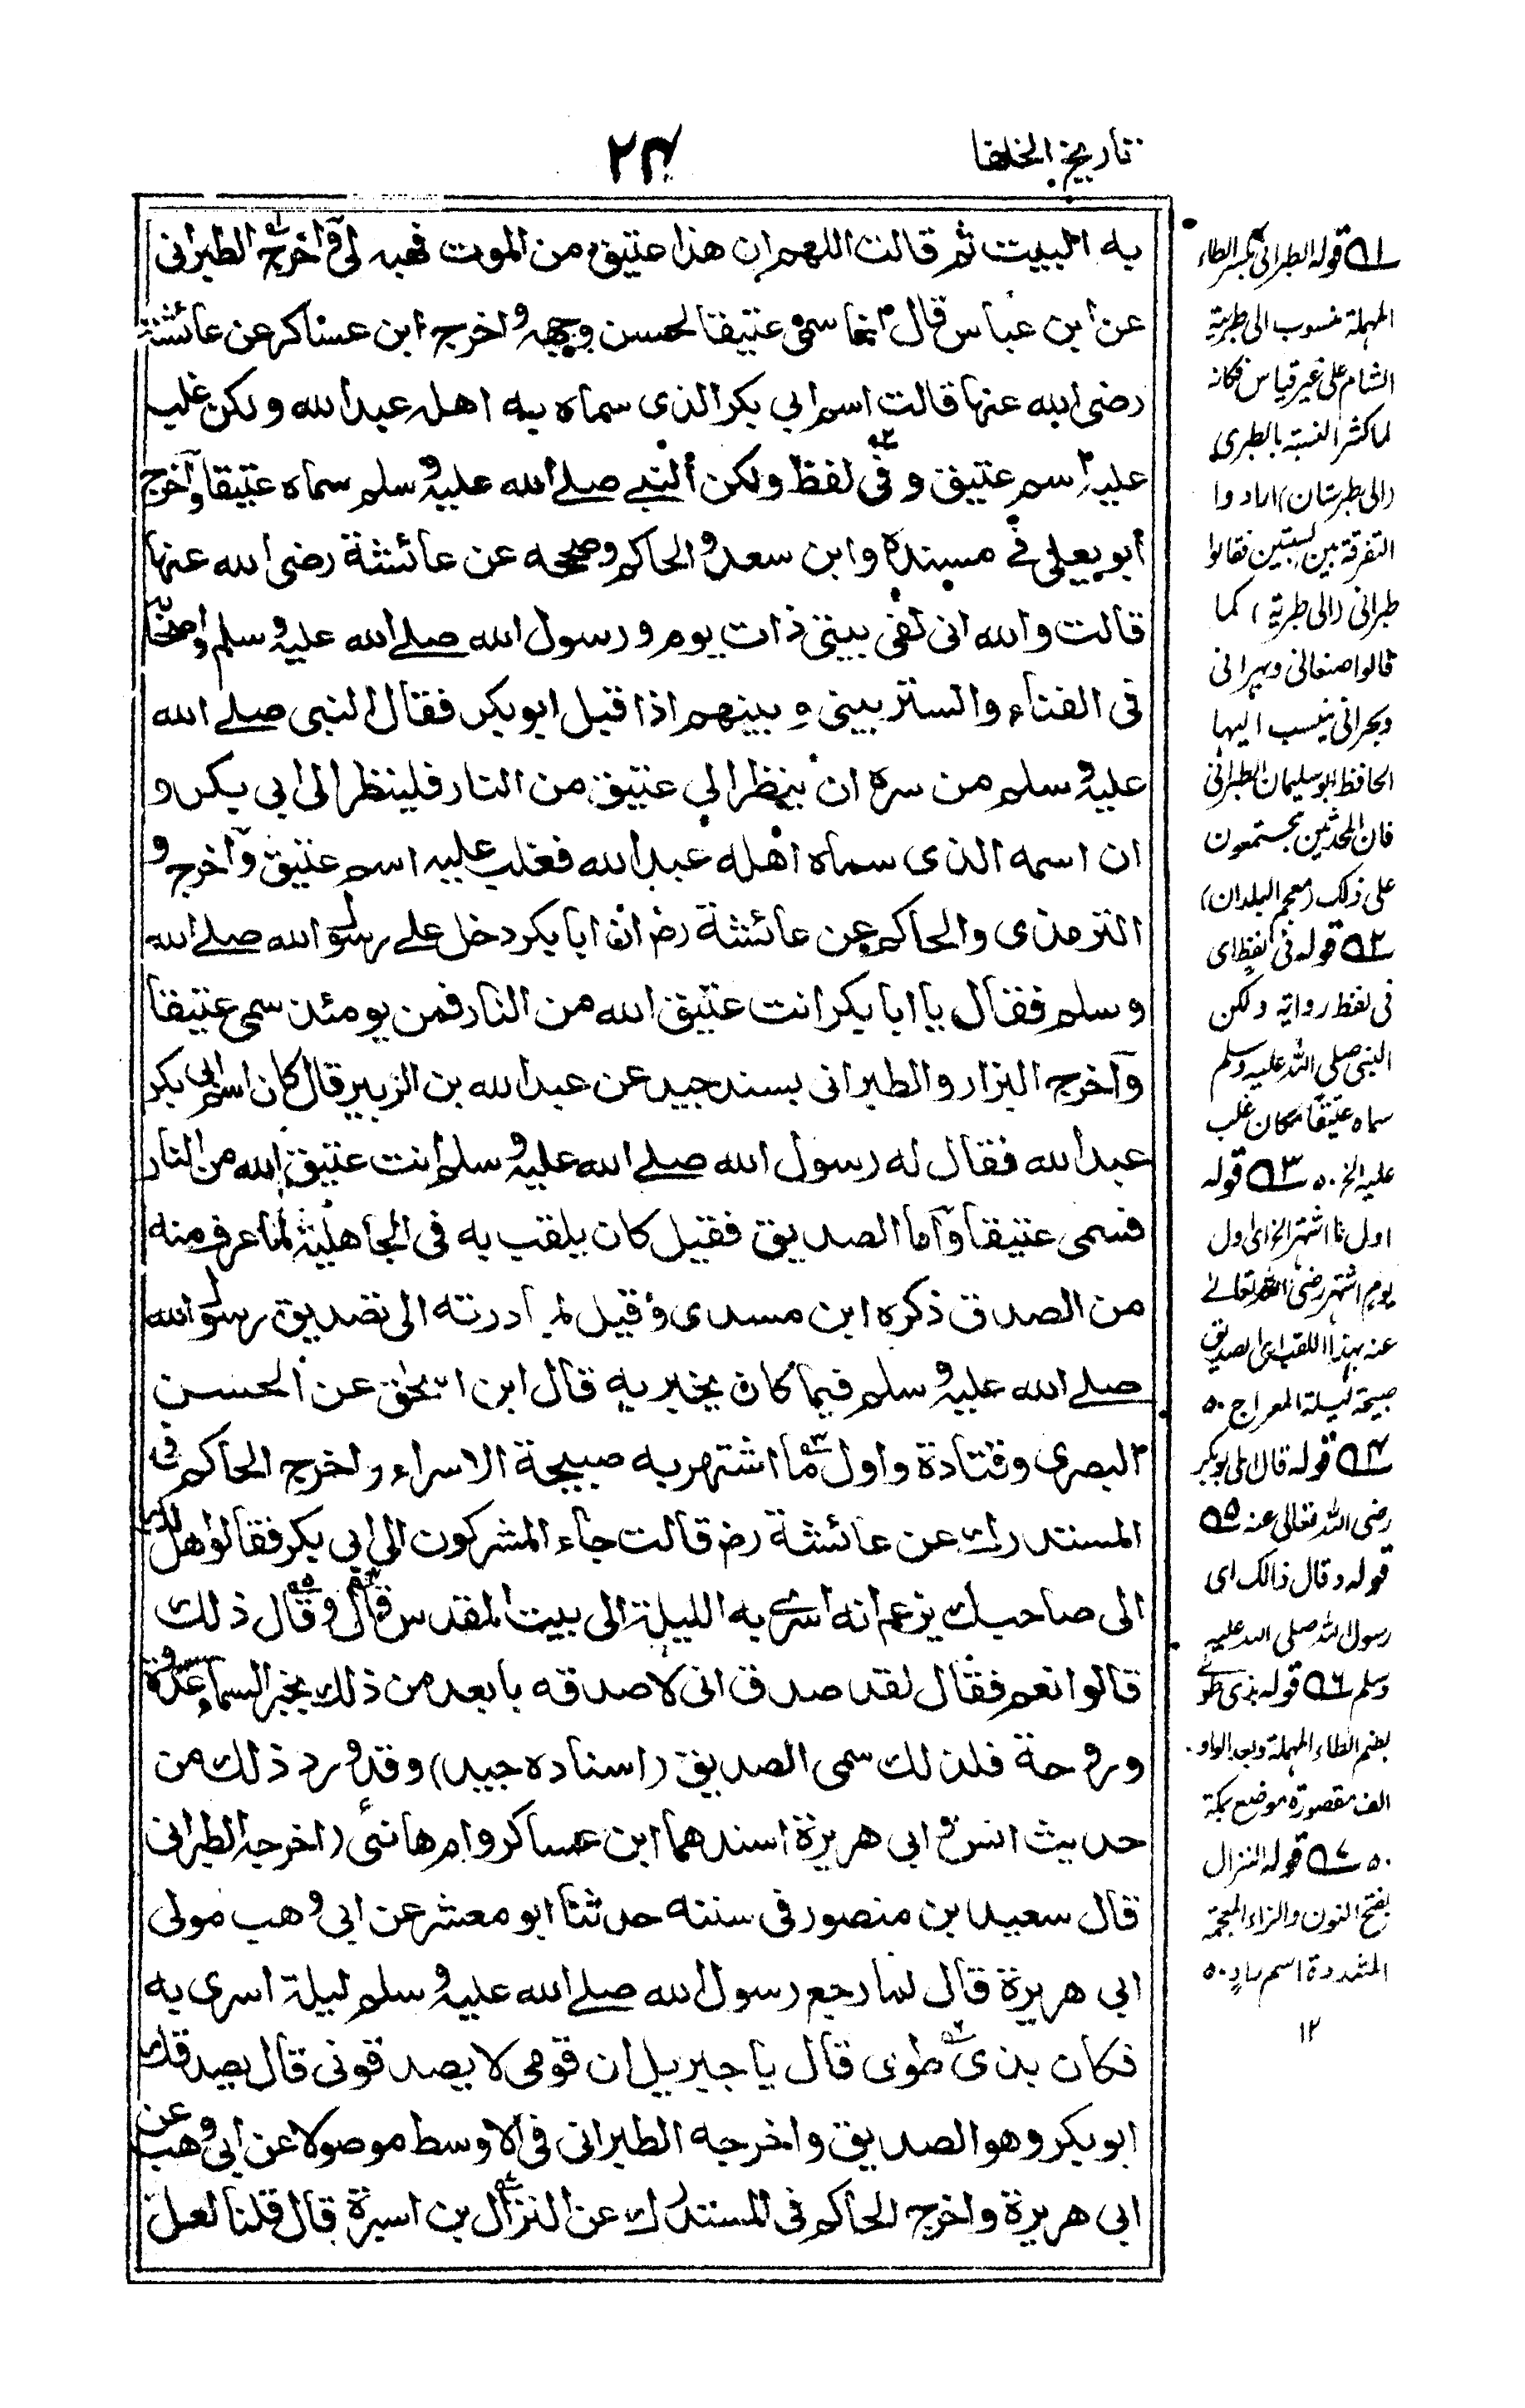 تاريخ الخلفا
٢٤
به البيت ثم قالت اللهم ان هذا عتيق من الموت فهبه لى و اخرج الطبرانى
عن ابن عباس قال انما سمى عتيقا لحسن وجهه و اخرج ابن عساكر عن عائشة
رضى الله عنها قالت اسم ابى بكر الذى سماه به اهله عبد الله و لكن غلب
عليه اسم عتيق و فى لفظ ولكن النبى صلى الله عليه و سلم سماه عتيقا و اخرج
ابو يعلى فى مسنده و ابن سعد و الحاكم و صححه عن عائشة رضى الله عنها
قالت والله انى لفى بيتى ذات يوم و رسول الله صلے الله عليه و سلم و اصحابه
فى الفناء والستر بينى و بينهم اذا قبل ابو بكر فقال النبى صلے الله
عليه و سلم من سره ان ينظر الى عتيق من النار فلينظر الى ابى بكر و
ان اسمه الذى سماه اهله عبد الله فغلب عليه اسم عتيق و اخرج
الترمذى والحاكم عن عائشة رضـ ان ابا بكر دخل على رسول الله صلے الله
و سلم فقال يا ابا بكر انت عتيق الله من النار فمن يومئذ سمى عتيقا
و اخرج البزار و الطبرانى بسند جيد عن عبد الله بن الزبير قال كان اسم ابى بكر
عبد الله فقال له رسول الله صلے الله عليه و سلم انت عتيق الله من النار
فسمى عتيقا و اما الصديق فقيل كان يلقب به فى الجاهلية لما عرف منه
من الصدق ذكره ابن مسدى و قيل لمبادرته الى تصديق رسول الله
صلے الله عليه و سلم فيما كان يخبر به قال ابن اسحٰق عن الحسن
البصرى و قتادة و اول ما اشتهر به صبيحة الاسراء و اخرج الحاكم فى
المستدرك عن عائشة رضـ قالت جاء المشركون الى ابى بكر فقالوا هل لك
الى صاحبك يزعم انه اسرى به الليلة الى بيت المقدس قال و قال ذلك
قالوا نعم فقال لقد صدق انى لاصدقه بابعد من ذلك بخبر السماء غدوة
و روحة فلذلك سمى الصديق (اسناده جيد) و قد ورد ذلك من
حديث انس و ابى هريرة اسندهما ابن عساكر و ام هانئ (اخرجه الطبرانى
قال سعيد بن منصور فى سننه حدثنا ابو معشر عن ابى وهب مولى
ابى هريرة قال لما رجع رسول الله صلے الله عليه و سلم ليلة اسرى به
فكان بذى طوى قال يا جبريل ان قومى لا يصدقونى قال يصدقك
ابو بكر و هو الصديق و اخرجه الطبرانى فى الاوسط موصولا عن ابى وهب عن
ابى هريرة و اخرج الحاكم فى المستدرك عن النزال بن اسبرة قال قلنا لعلى
١ه قوله الطبرانى بكسر الطاء
المهملة منسوب الى طبرية
الشام على غير قياس فكانه
لما كثر النسبة بالطبرى
(الى طبرستان) ارادوا
التفرقة بين نسبتين فقالوا
طبرانى (الى طبرية) كما
قالوا صنعانى و بهرانى
و بحرانى ينسب اليها
الحافظ ابو سليمان الطبرانى
فان المحدثين يجتمعون
على ذلك (معجم البلدان)
٢ه قوله فى لفظ اى
فى لفظ رواية و لكن
النبى صلى الله عليه وسلم
سماه عتيقا مكان غلب
عليه الخ ٥٠ ٣ه قوله
اول ما اشتهر الخ اى اول
يوم اشتهر رضى الله تعالے
عنه بهذا اللقب اى الصديق
صبيحة ليلة المعراج ٥٠
٤ه قوله قال اى ابو بكر
رضى الله تعالى عنه ٥ه
قوله و قال ذالك اى
رسول الله صلى الله عليه
وسلم ٦ه قوله بذى طوى
بضم الطاء المهملة و بعد الواو
الف مقصورة موضع بمكة
٥٠ ٧ه قوله النزال
بفتح النون و الزاء المعجمة
المشددة اسم ٥٠
١٢